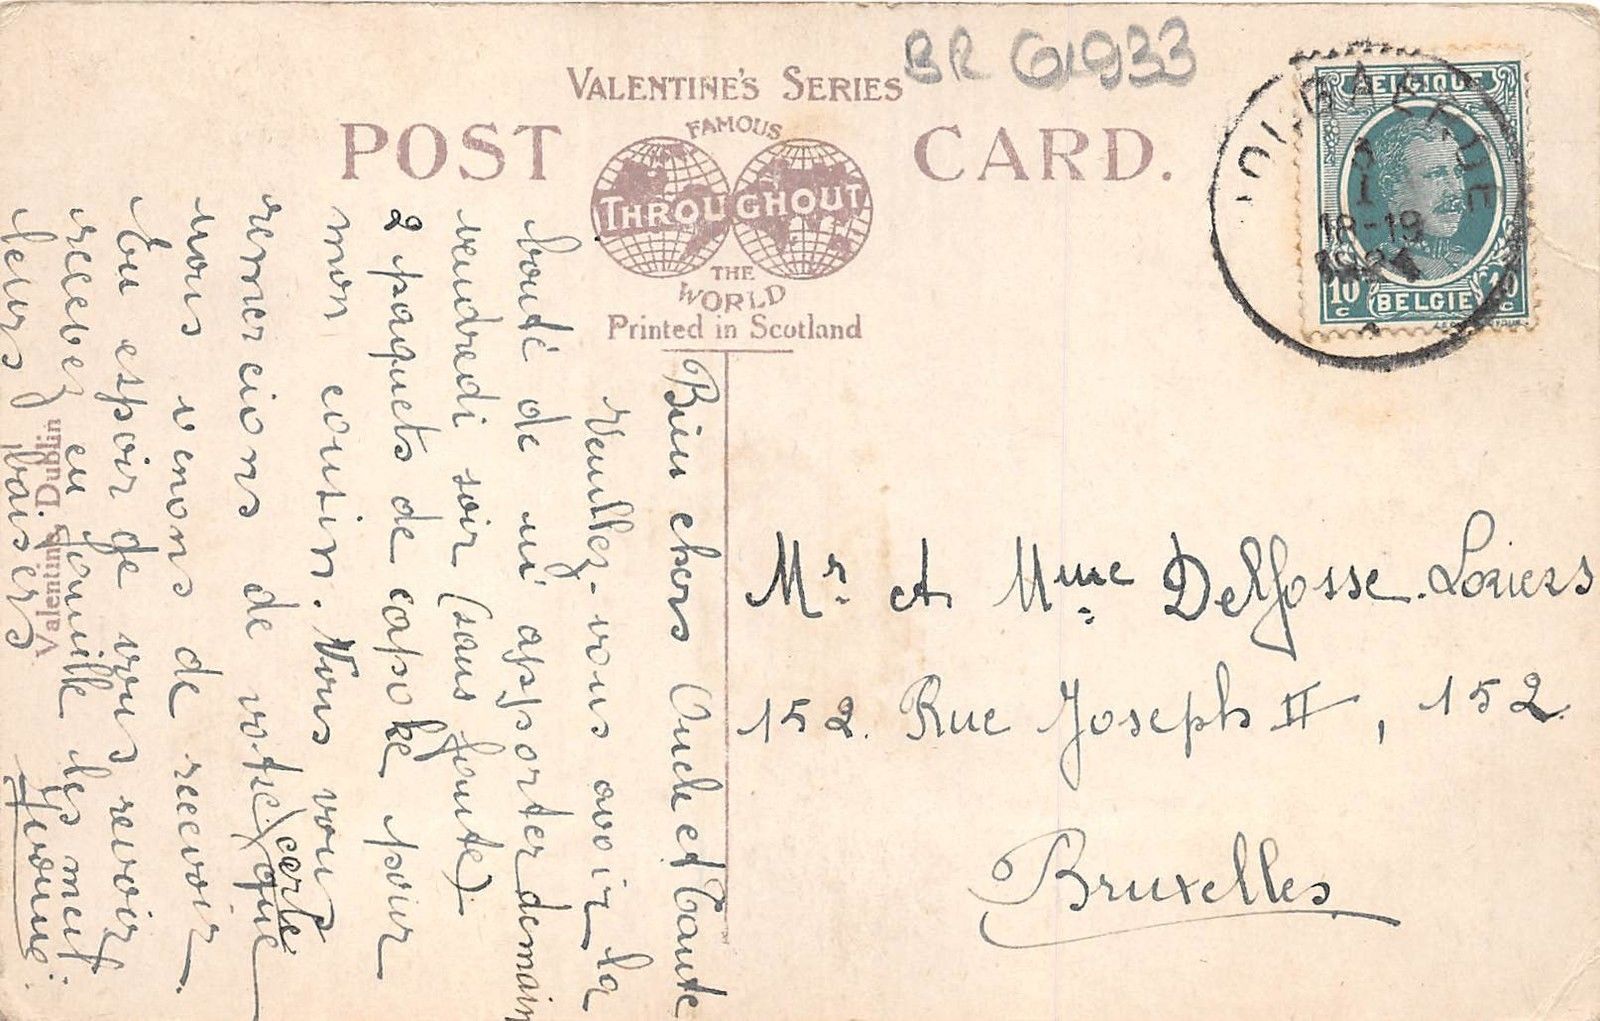 BR 61933
VALENTINE'S SERIES
POST CARD.
FAMOUS
THROUGHOUT
THE
WORLD
Printed in Scotland
BELGIQUE
18-19
10 c BELGIE 10 c
Mr. et Mme Delfosse-Loriers
152. Rue Joseph II, 152
Bruxelles
Bien chers Oncle et Tante
Veuillez-vous avoir la
bonté de m'apporter demain
vendredi soir (sans faute)
2 paquets de capoke pour
mon cousin. Nous vous
remercions de votre carte que
nous venons de recevoir.
En espoir de vous revoir
recevez en famille les meil
leurs baisers
Yvonne.
Valentine, Dublin.